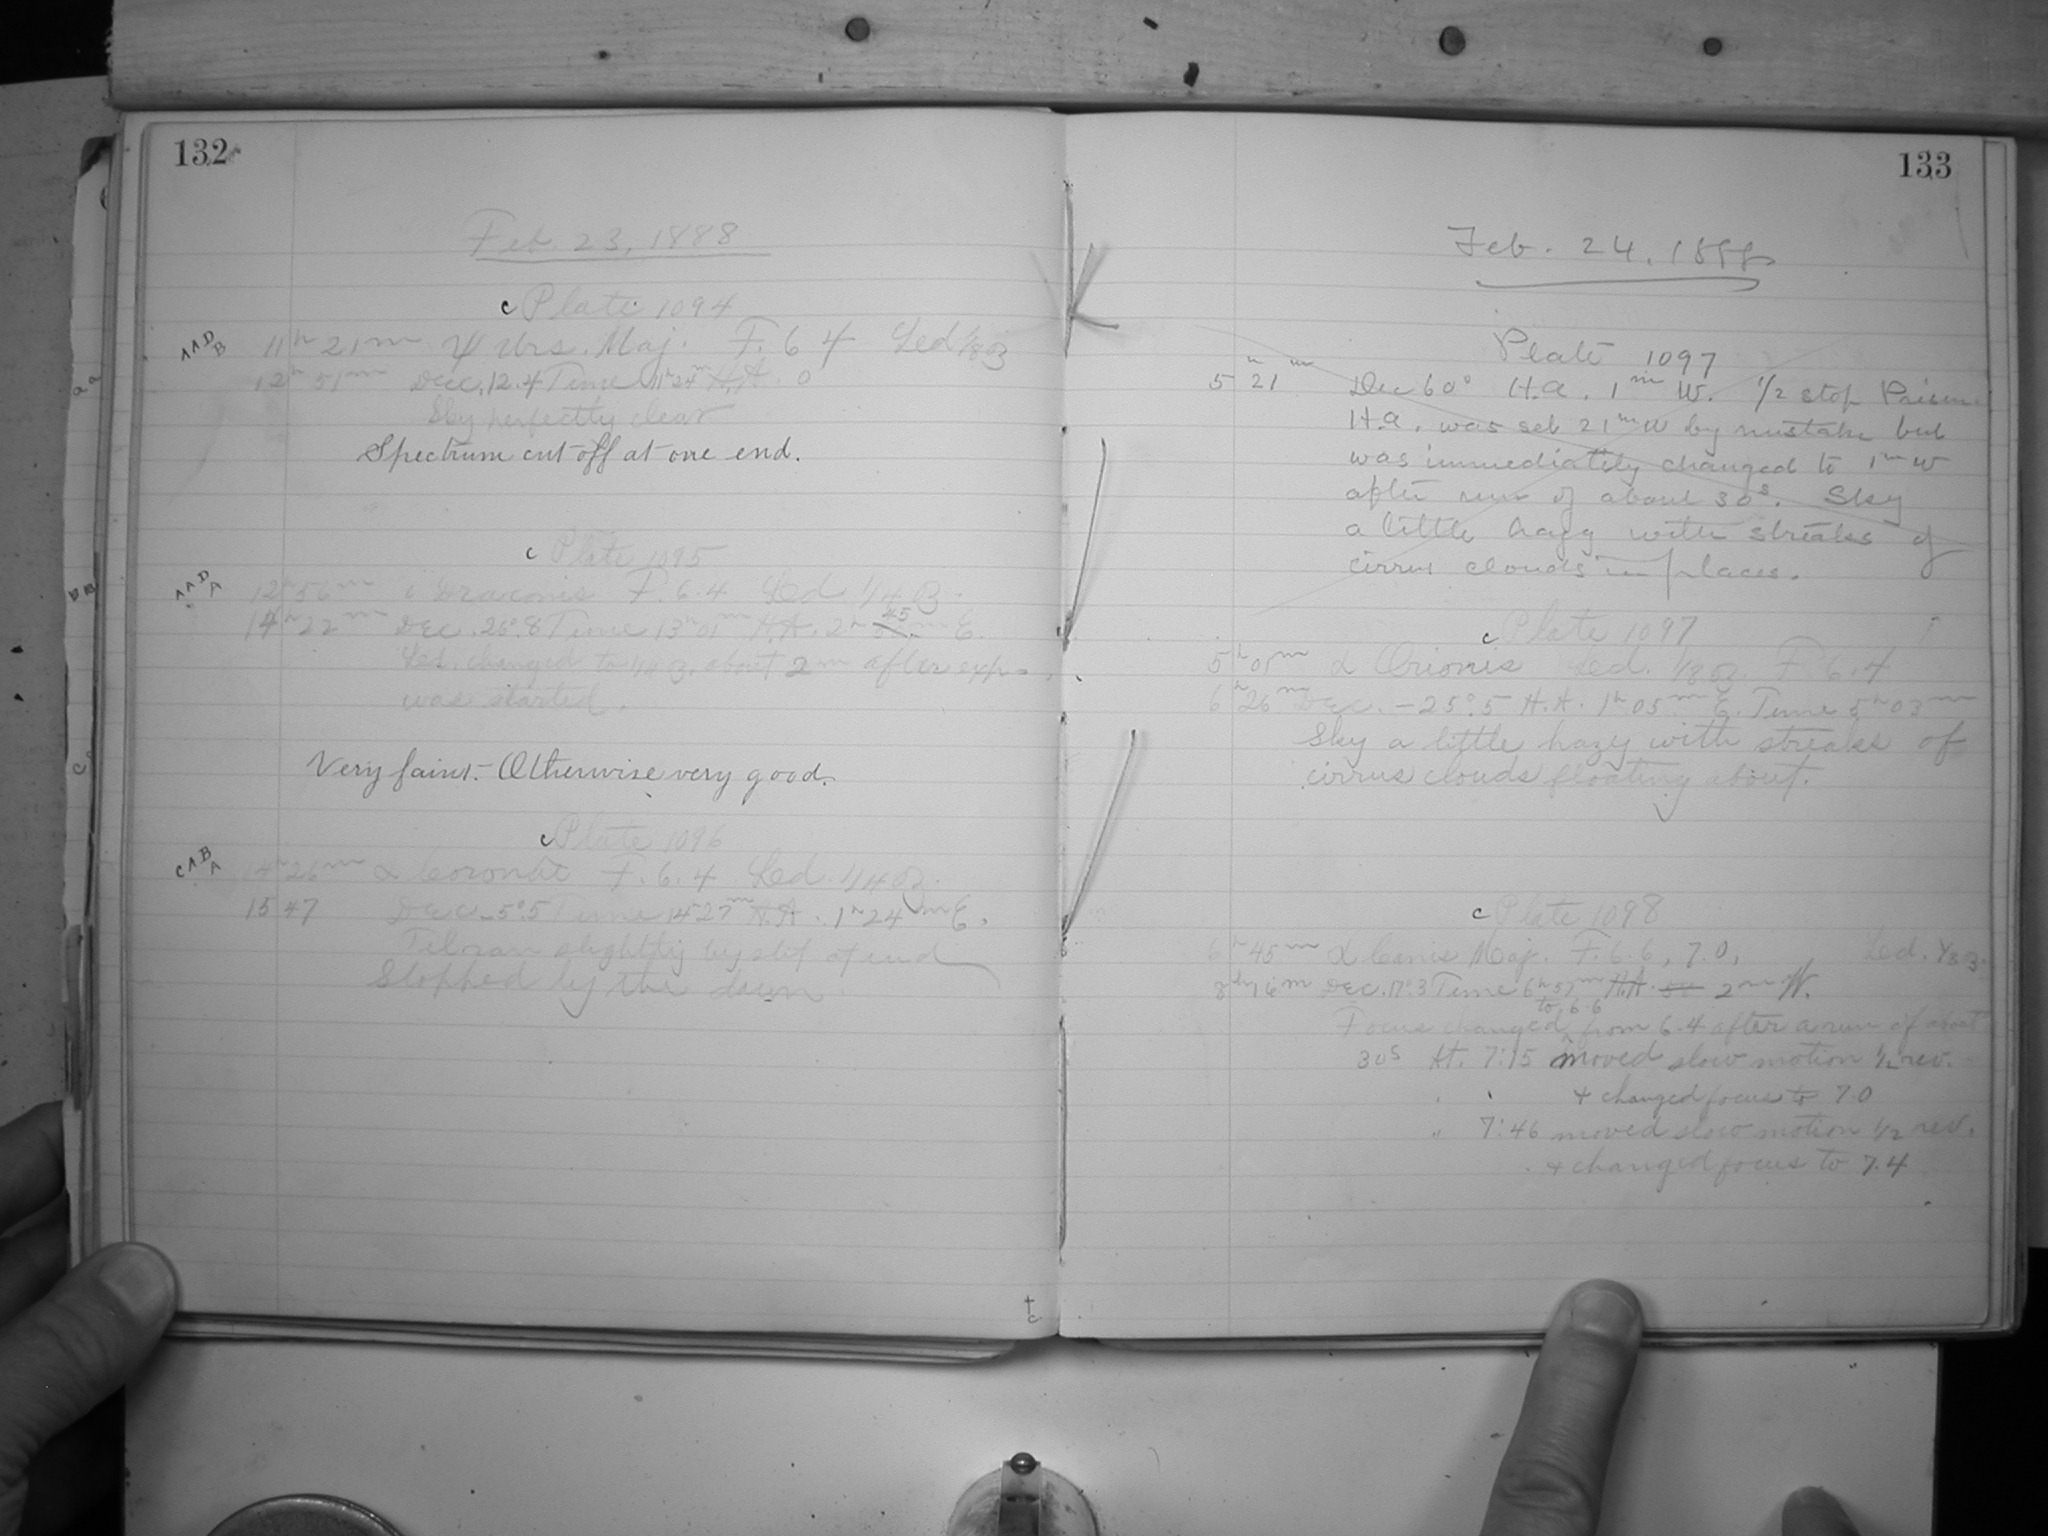 132
Feb. 23, 1888
c Plate 1094
AAD B
11h 21m ψ Urs. Maj. F. 6.4 Led 1/8 oz
12h 51m Dec. 12.4 Time 11h 24m H.A. 0
Sky perfectly clear
Spectrum cut off at one end.
c Plate 1095
AAD A
12h 56m ι Draconis F. 6.4 Led 1/4 oz.
14h 22m Dec. 26°.8 Time 13h 01m H.A. 2h 45m E.
Led. changed to 1/4 oz. about 2m after exp.
was started.
Very faint. Otherwise very good.
c Plate 1096
CAB A
14h 26m α Coronae F. 6.4 Led. 1/4 oz.
15 47 Dec -5°.5 Time 14h 27m H.A. 1h 24m E.
Tel. ran slightly by slit at end
Stopped by the dawn
133
Feb. 24, 1888
Plate 1097
5h 21m Dec 60° H.A. 1m W. 1/2 stop Prism
H.A. was set 21m W by mistake but
was immediately changed to 1m W
after run of about 30s. Sky
a little hazy with streaks of
cirrus clouds in places.
c Plate 1097
5h 05m α Orionis Led. 1/8 oz. F. 6.4
6h 26m Dec. -25°.5 H.A. 1h 05m E. Time 5h 03m
Sky a little hazy with streaks of
cirrus clouds floating about.
c Plate 1098
6h 45m α Canis Maj. F. 6.6, 7.0, Led. 1/8 oz.
8h 16m Dec. 17°.3 Time 6h 52m H.A. 2m W.
Focus changed to 6.6 from 6.4 after a run of about
30s At. 7:15 moved slow motion 1/2 rev.
+ changed focus to 7.0
" 7:46 moved slow motion 1/2 rev.
+ changed focus to 7.4